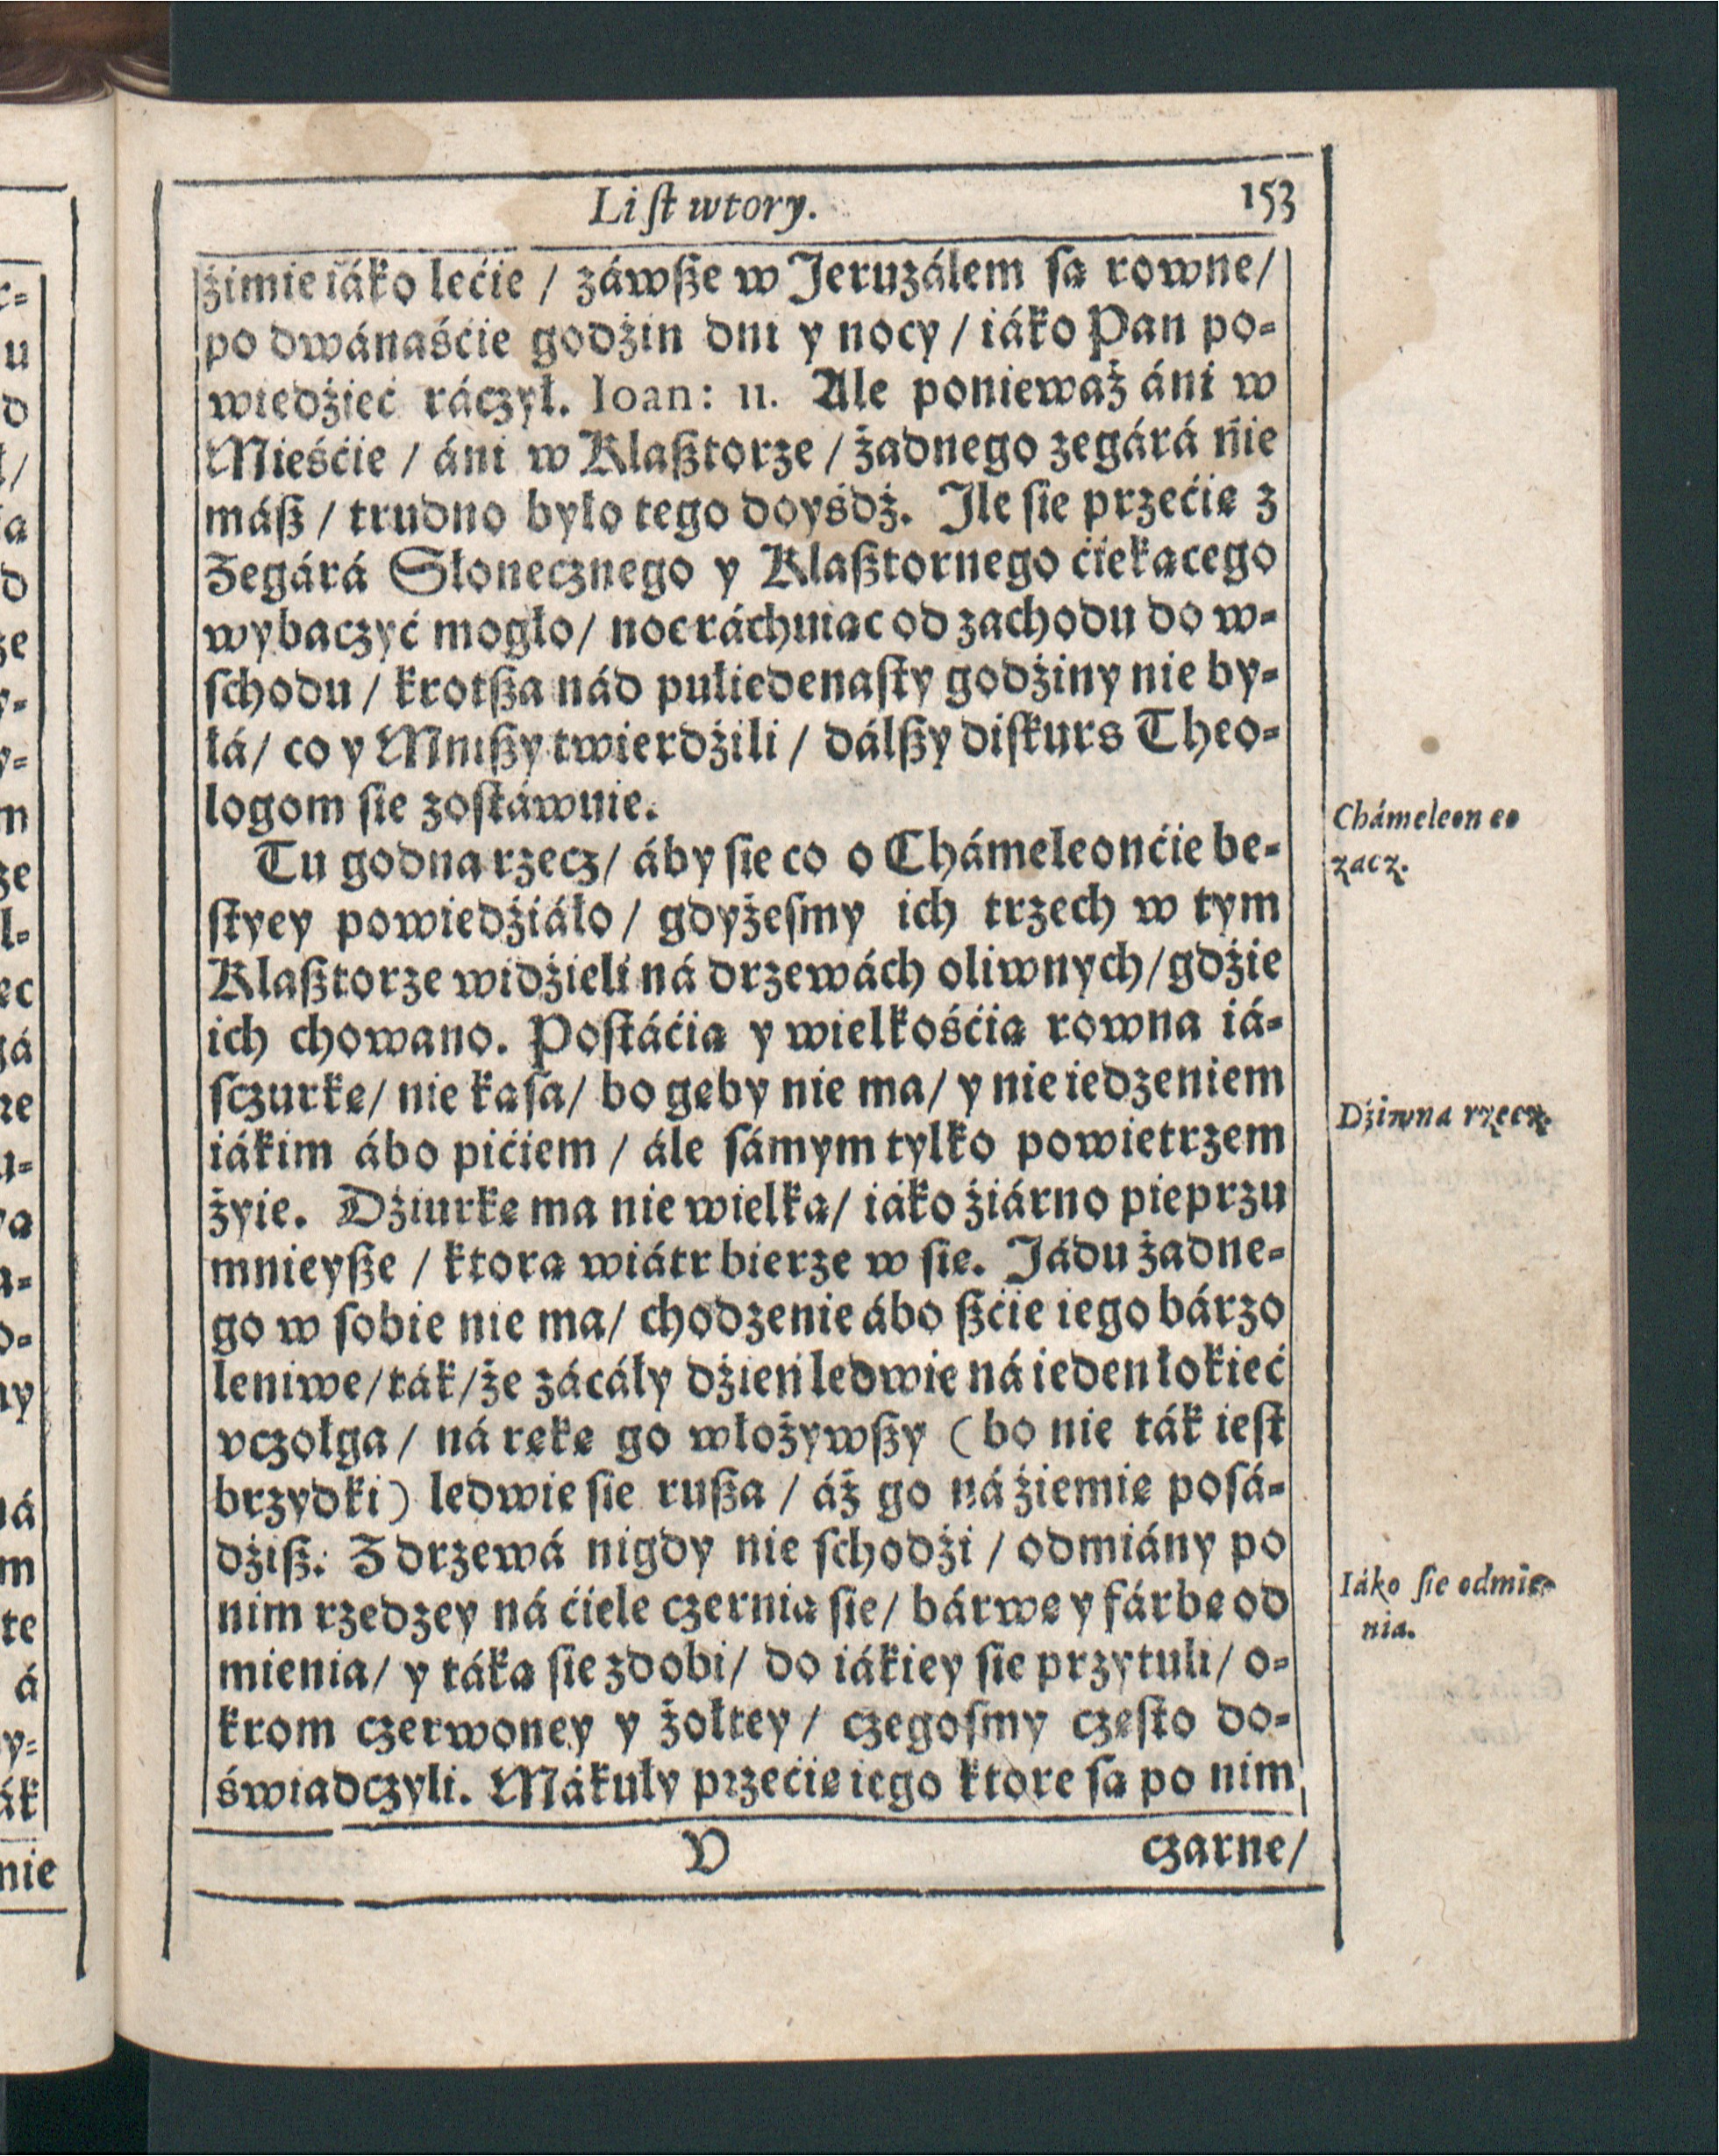 Liſt wtory. 153
źimie iáko lećie / záwße w Jeruzálem ſą rowne/
po dwánaśćie godźin dni y nocy / iáko Pan po-
wiedźieć ráczył. Ioan: 11. Ale ponieważ áni w
Mieśćie / áni w Klaßtorze / żadnego zegárá nie
máß / trudno było tego doyśdź. Ile ſie przećię z
Zegárá Słonecznego y Klaßtornego ćiekącego
wybaczyć mogło / noc ráchuiąc od zachodu do w-
ſchodu / krotßa nád pułiedenaſty godźiny nie by-
łá / co y Mnißy twierdźili / dálßy diſkurs Theo-
logom ſie zoſtáwuie.
Tu godna rzecz / áby ſie co o Chámeleonćie be-
ſtyey powiedźiáło / gdyżeſmy ich trzech w tym
Klaßtorze widźieli ná drzewách oliwnych / gdźie
ich chowano. Poſtáćią y wielkośćią rowna iá-
ſczurke / nie kąſa / bo gęby nie ma / y nie iedzeniem
iákim ábo pićiem / ále ſámym tylko powietrzem
żyie. Dźiurkę ma nie wielką / iáko źiárno pieprzu
mnieyße / ktorą wiátr bierze w ſię. Jádu żadne-
go w ſobie nie ma / chodzenie ábo ßćie iego bárzo
leniwe / ták / że zácáły dźień ledwie ná ieden łokieć
vczołga / ná rękę go włożywßy ( bo nie ták ieſt
brzydki ) ledwie ſie rußa / áż go ná źiemię poſá-
dźiß. Z drzewá nigdy nie ſchodźi / odmiány po
nim rzedzey ná ćiele czernią ſie / bárwę y fárbę od
mienia / y táką ſie zdobi / do iákiey ſie przytuli / o-
krom czerwoney y żołtey / czegoſmy częſto do-
świadczyli. Mákuły przećię iego ktore ſą po nim
V czarne/
Chámeleon co
zacz.
Dźiwna rzecz.
Iáko ſie odmie-
nia.